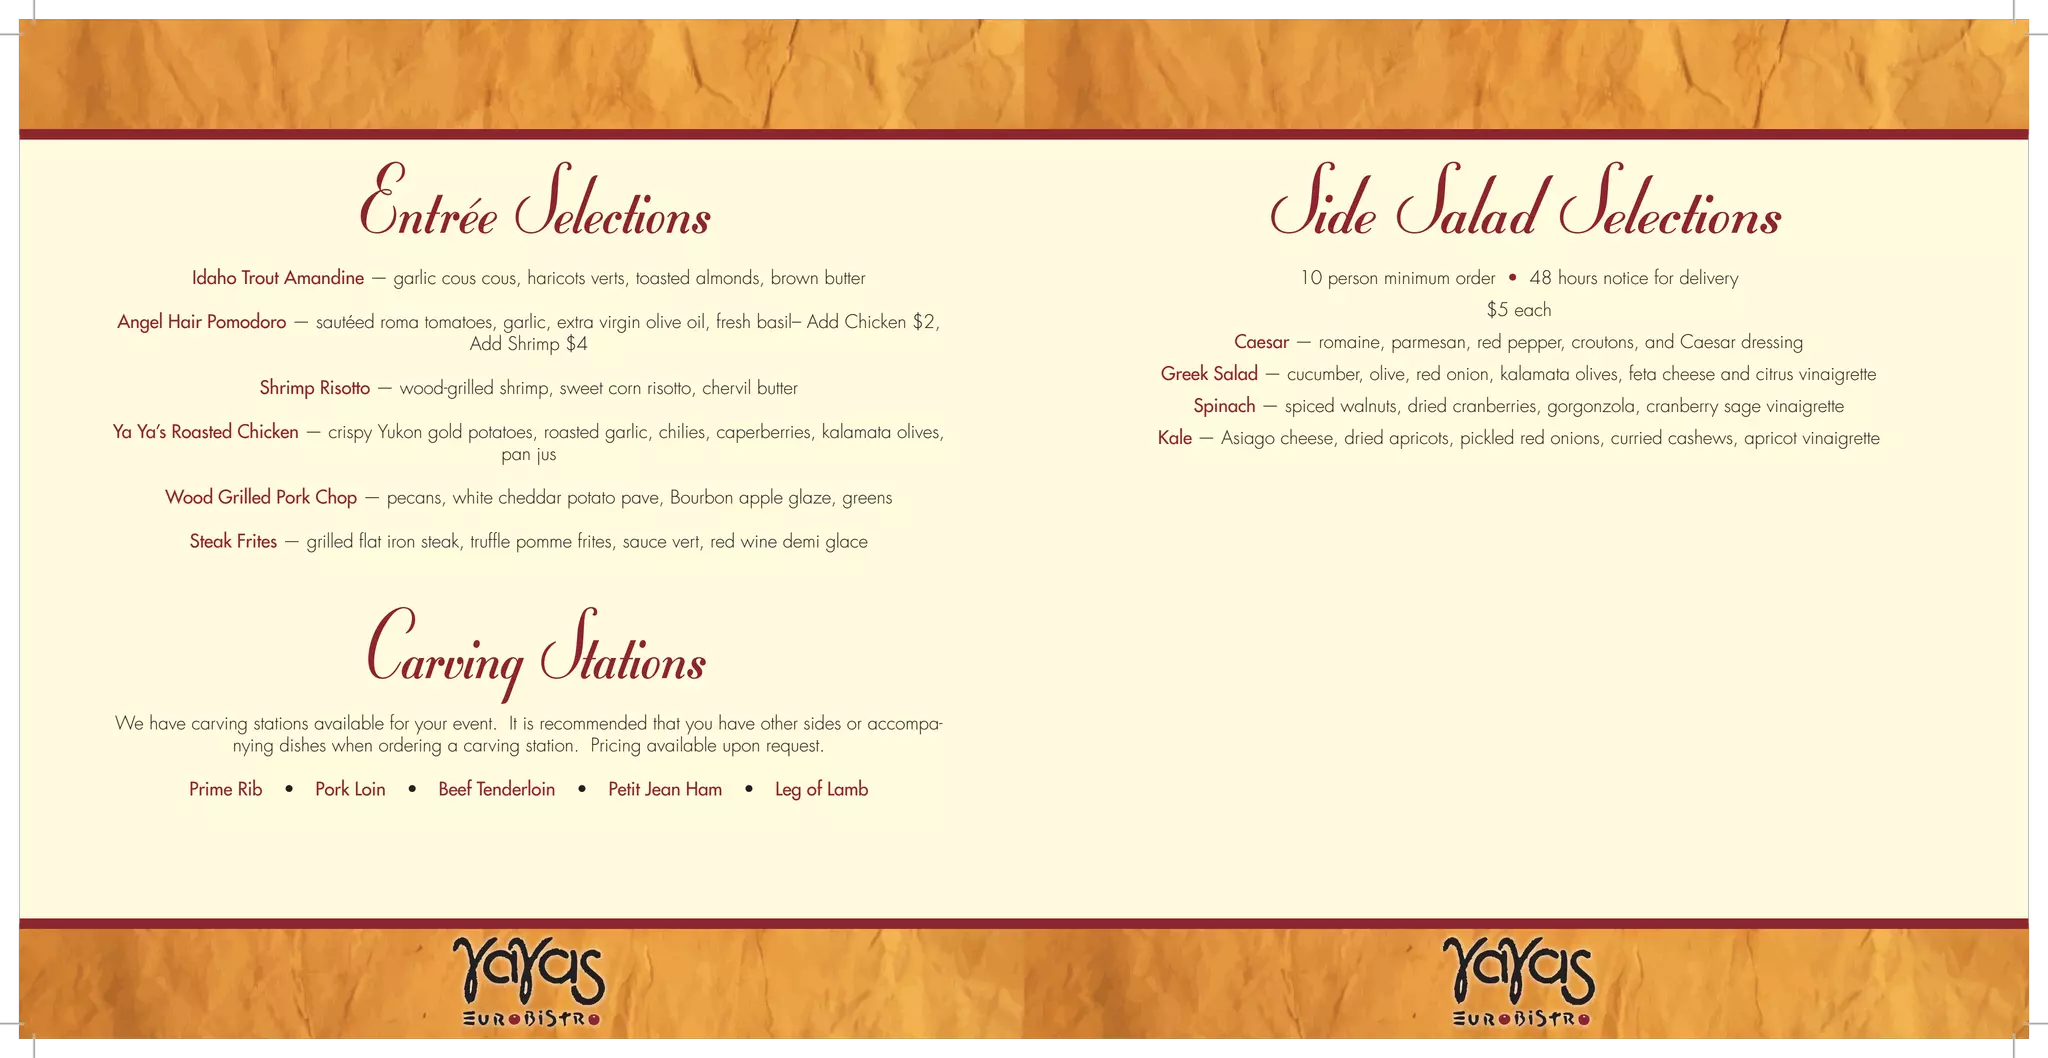 Entrée Selections
Idaho Trout Amandine — garlic cous cous, haricots verts, toasted almonds, brown butter
Angel Hair Pomodoro — sautéed roma tomatoes, garlic, extra virgin olive oil, fresh basil– Add Chicken $2,
Add Shrimp $4
Shrimp Risotto — wood-grilled shrimp, sweet corn risotto, chervil butter
Ya Ya's Roasted Chicken — crispy Yukon gold potatoes, roasted garlic, chilies, caperberries, kalamata olives,
pan jus
Wood Grilled Pork Chop — pecans, white cheddar potato pave, Bourbon apple glaze, greens
Steak Frites — grilled flat iron steak, truffle pomme frites, sauce vert, red wine demi glace
Carving Stations
We have carving stations available for your event.  It is recommended that you have other sides or accompa-
nying dishes when ordering a carving station.  Pricing available upon request.
Prime Rib • Pork Loin • Beef Tenderloin • Petit Jean Ham • Leg of Lamb
YaYas
EUROBISTRO
Side Salad Selections
10 person minimum order • 48 hours notice for delivery
$5 each
Caesar — romaine, parmesan, red pepper, croutons, and Caesar dressing
Greek Salad — cucumber, olive, red onion, kalamata olives, feta cheese and citrus vinaigrette
Spinach — spiced walnuts, dried cranberries, gorgonzola, cranberry sage vinaigrette
Kale — Asiago cheese, dried apricots, pickled red onions, curried cashews, apricot vinaigrette
YaYas
EUROBISTRO